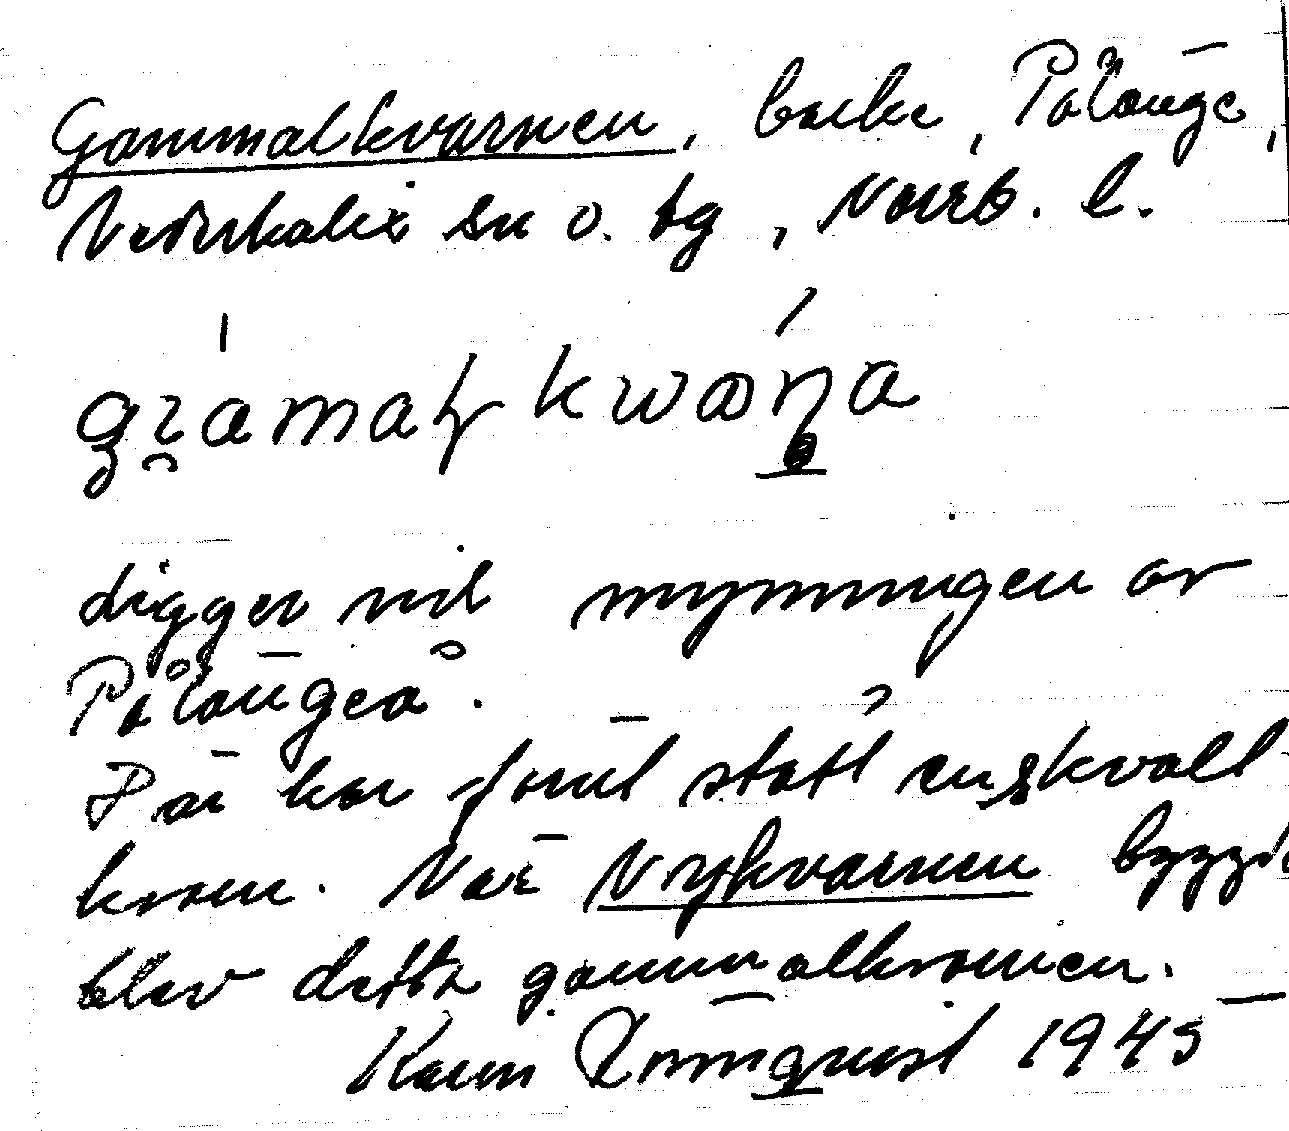 Gammalkvarnen, backe, Pålänge,
Nederkalix sn o. tg, Norrb. l.
ligger vid mynningen av
Pålängeå.
Där har förut stått en skvalt
kvarn. När Nykvarnen byggdes
blev detta gammalkvarnen.
Karin Rönnquist 1945